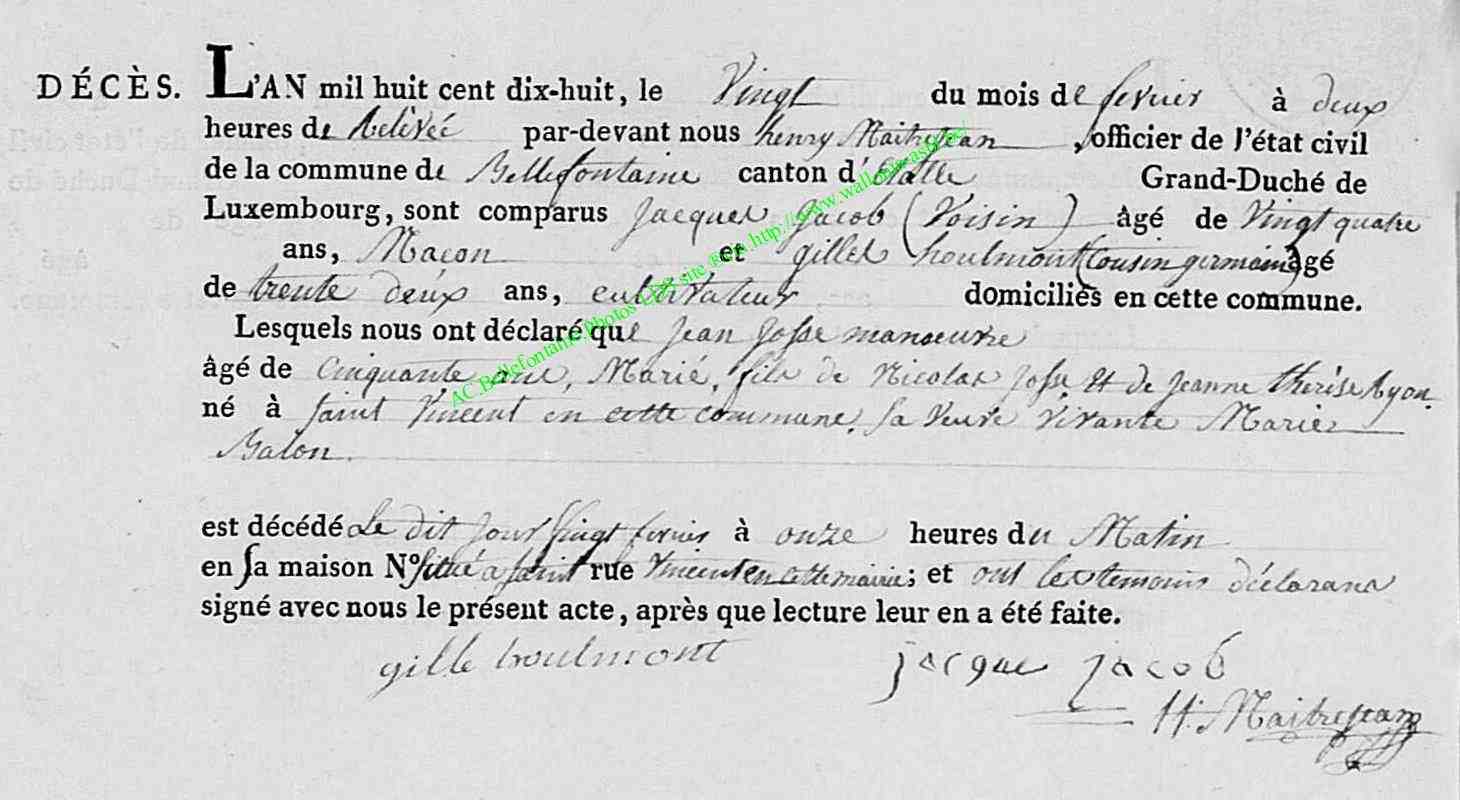 DÉCÈS. L'AN mil huit cent dix-huit, le Vingt du mois de fevrier à deux
heures de Relevée par-devant nous henry Maitrejean, officier de l'état civil
de la commune de Bellefontaine canton d'Etalle Grand-Duché de
Luxembourg, sont comparus Jacques Jacob (Voisin) âgé de Vingt quatre
ans, Macon et gilles houlmont (Cousin germain) âgé
de trente deux ans, cultivateur domiciliés en cette commune.
Lesquels nous ont déclaré que Jean Josse manoeuvre
âgé de Cinquante ans, Marié, fils de Nicolas Josse et de Jeanne therise
né à saint Vincent en cette commune, sa veuve vivante Marie
Balon
est décédé Le dit jour Vingt fevrier à onze heures du Matin
en sa maison N° situé a saint rue Vincent en cette mairie; et ont les temoins déclarans
signé avec nous le présent acte, après que lecture leur en a été faite.
gille houlmont jacque jacob
H. Maitrejean
AC.Bellefontaine.Photos site http://www.wallonica